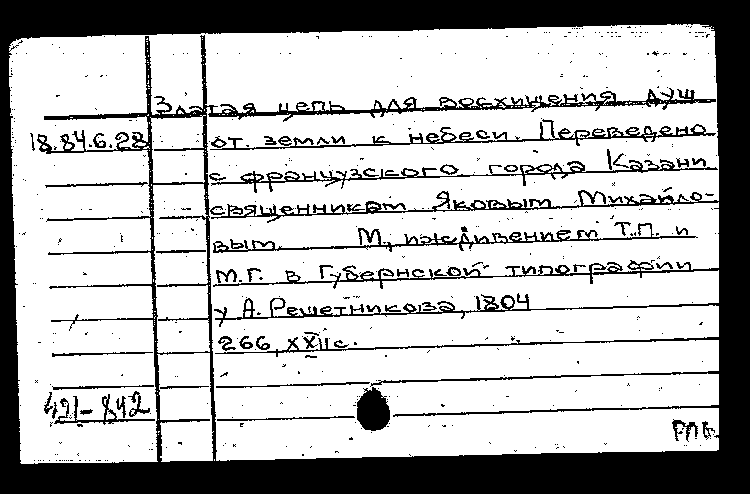 Златая цепь для восхищения душ
18.84.6.28 от земли к небеси. Переведено
с французского города Казани
священником Яковым Михайло-
вым. М, иждивением Т.П. и
М.Г. в Губернской типографии
у А. Решетникова, 1804
266, XXII с.
491-842